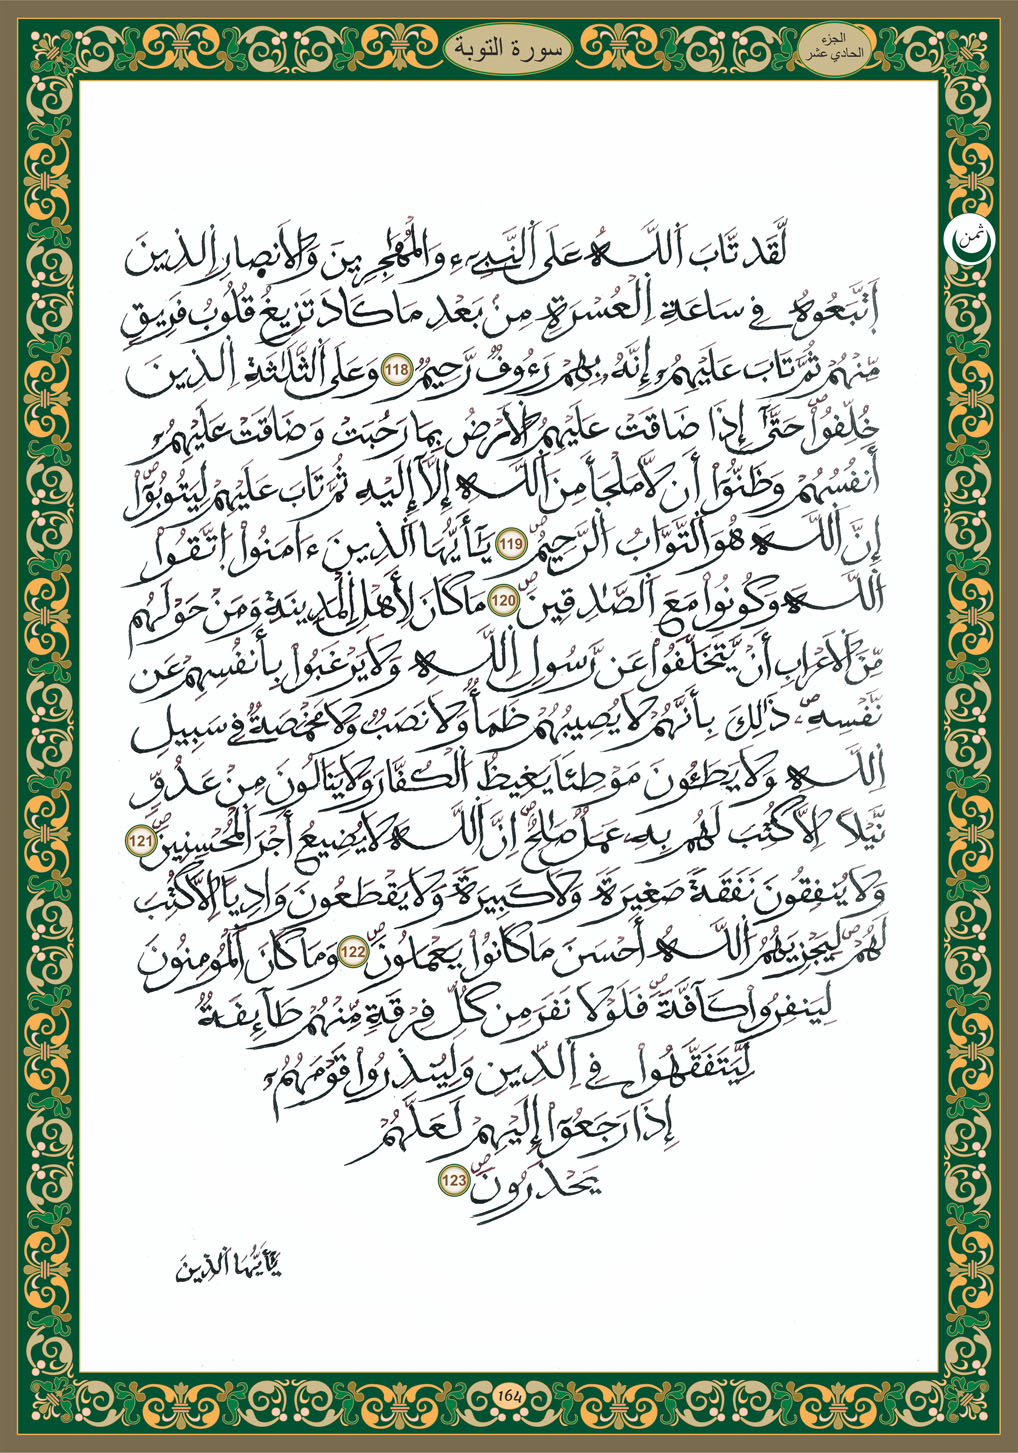 سورة التوبة
الجزء
الحادي عشر
ثمن
لَّقَد تَّابَ اَ۬للَّهُ عَلَى اَ۬لنَّبِےٓءِ وَالْمُهَٰجِرِينَ وَالَانصِارِ اِ۬لذِينَ
اَ۪تَّبَعُوهُ فِے سَاعَةِ اِ۬لْعُسْرَةِ مِنۢ بَعْدِ مَا كَادَ تَزِيغُ قُلُوبُ فَرِيقٖ
مِّنْهُمْ ثُمَّ تَابَ عَلَيْهِمُۥٓ إِنَّهُۥ بِهِمْ رَءُوفٞ رَّحِيمٞ 118 وَعَلَى اَ۬لثَّلَٰثَةِ اِ۬لذِينَ
خُلِّفُواْ حَتَّىٰٓ إِذَا ضَاقَتْ عَلَيْهِمُ اُ۬لَارْضُ بِمَا رَحُبَتْ وَضَاقَتْ عَلَيْهِمُۥٓ
أَنفُسُهُمْ وَظَنُّوٓاْ أَن لَّا مَلْجَأَ مِنَ اَ۬للَّهِ إِلَّآ إِلَيْهِ ثُمَّ تَابَ عَلَيْهِمْ لِيَتُوبُوٓاْ
إِنَّ اَ۬للَّهَ هُوَ اَ۬لتَّوَّابُ اُ۬لرَّحِيمُ 119 يَٰٓأَيُّهَا اَ۬لذِينَ ءَامَنُواْ اُ۪تَّقُواْ
اُ۬للَّهَ وَكُونُواْ مَعَ اَ۬لصَّٰدِقِينَ 120 مَا كَانَ لِأَهْلِ اِ۬لْمَدِينَةِ وَمَنْ حَوْلَهُم
مِّنَ اَ۬لَاعْرَابِ أَنْ يَّتَخَلَّفُواْ عَن رَّسُولِ اِ۬للَّهِ وَلَا يَرْغَبُواْ بِأَنفُسِهِمْ عَن
نَّفْسِهِۦ ذَٰلِكَ بِأَنَّهُمْ لَا يُصِيبُهُمْ ظَمَأٞ وَلَا نَصَبٞ وَلَا مَخْمَصَةٞ فِے سَبِيلِ
اِ۬للَّهِ وَلَا يَطَـُٔونَ مَوْطِئاٗ يَغِيظُ اُ۬لْكُفَّارَ وَلَا يَنَالُونَ مِنْ عَدُوّٖ
نَّيْلاً اِلَّا كُتِبَ لَهُم بِهِۦ عَمَلٞ صَٰلِحٌ اِنَّ اَ۬للَّهَ لَا يُضِيعُ أَجْرَ اَ۬لْمُحْسِنِينَ 121
وَلَا يُنفِقُونَ نَفَقَةٗ صَغِيرَةٗ وَلَا كَبِيرَةٗ وَلَا يَقْطَعُونَ وَادِياً اِلَّا كُتِبَ
لَهُمْ لِيَجْزِيَهُمُ اُ۬للَّهُ أَحْسَنَ مَا كَانُواْ يَعْمَلُونَ 122 وَمَا كَانَ اَ۬لْمُومِنُونَ
لِيَنفِرُواْ كَآفَّةٗ فَلَوْلَا نَفَرَ مِن كُلِّ فِرْقَةٖ مِّنْهُمْ طَآئِفَةٞ
لِّيَتَفَقَّهُواْ فِے اِ۬لدِّينِ وَلِيُنذِرُواْ قَوْمَهُمُۥٓ
إِذَا رَجَعُوٓاْ إِلَيْهِمْ لَعَلَّهُمْ
يَحْذَرُونَ 123
يَٰٓأَيُّهَا اَ۬لذِينَ
164